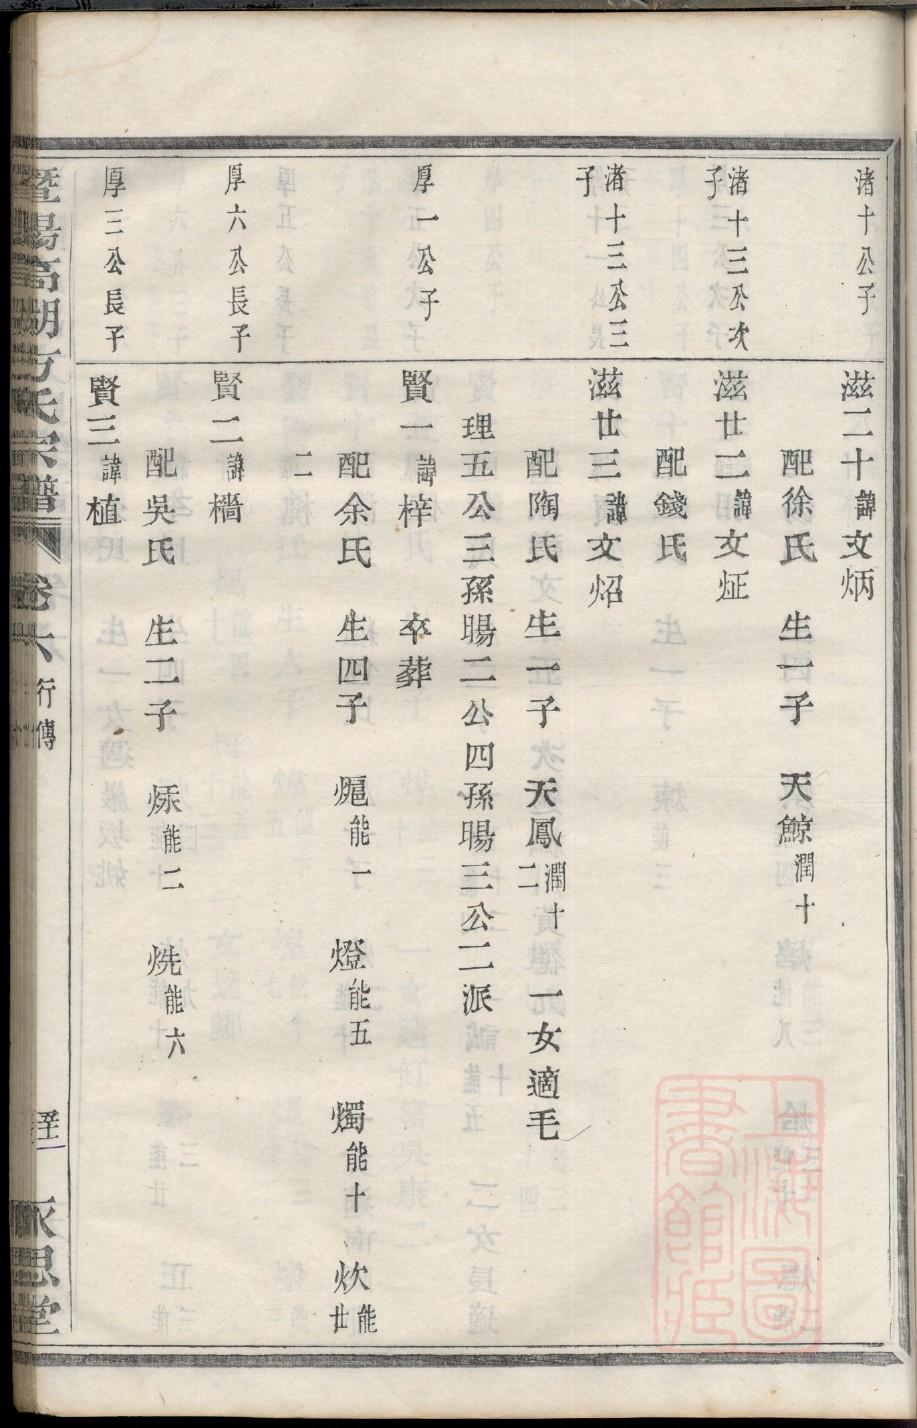 渚十公子
滋二十諱文炳
配徐氏 生一子 天鯨潤十
渚十三公次子
滋廿二諱文炡
配錢氏
渚十三公三子
滋廿三諱文炤
配陶氏 生一子 天鳳潤十二 一女適毛
理五公三孫暘二公四孫暘三公二派
厚一公子
賢一諱梓 卒葬
配余氏 生四子 熩能一 燈能五 燭能十 炊能廿二
厚六公長子
賢二諱檣
配吳氏 生二子 烁能二 烍能六
厚三公長子
賢三諱植
暨陽高湖方氏宗譜 卷六 行傳 永思堂